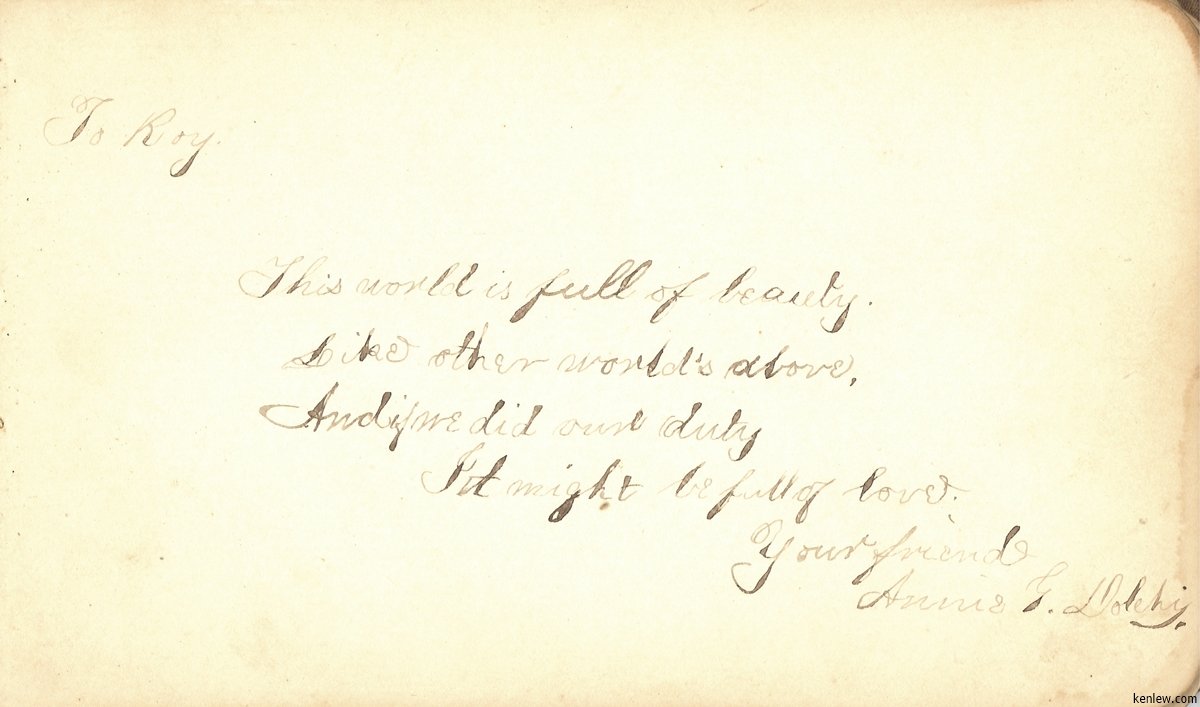 To Roy.
This world is full of beauty.
Like other world's above,
And if we did our duty
It might be full of love.
Your friend
Annie
kenlew.com